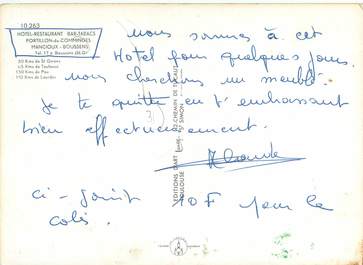 10.263
HOTEL-RESTAURANT BAR-TABACS
PORTILLON-de-COMMINGES
MANCIOUX - BOUSSENS
Tél. 17 à Boussens (H.-G.)
20 Kms de St Girons
65 Kms de Toulouse
150 Kms de Pau
110 Kms de Lourdes
nous sommes à cet
Hotel pour quelques jours.
nous cherchons un meublé.
Je te quitte en t'embrassant
bien affectueusement.
ci-joint 10F pour le
colis.
EDITIONS D'ART
TOULOUSE